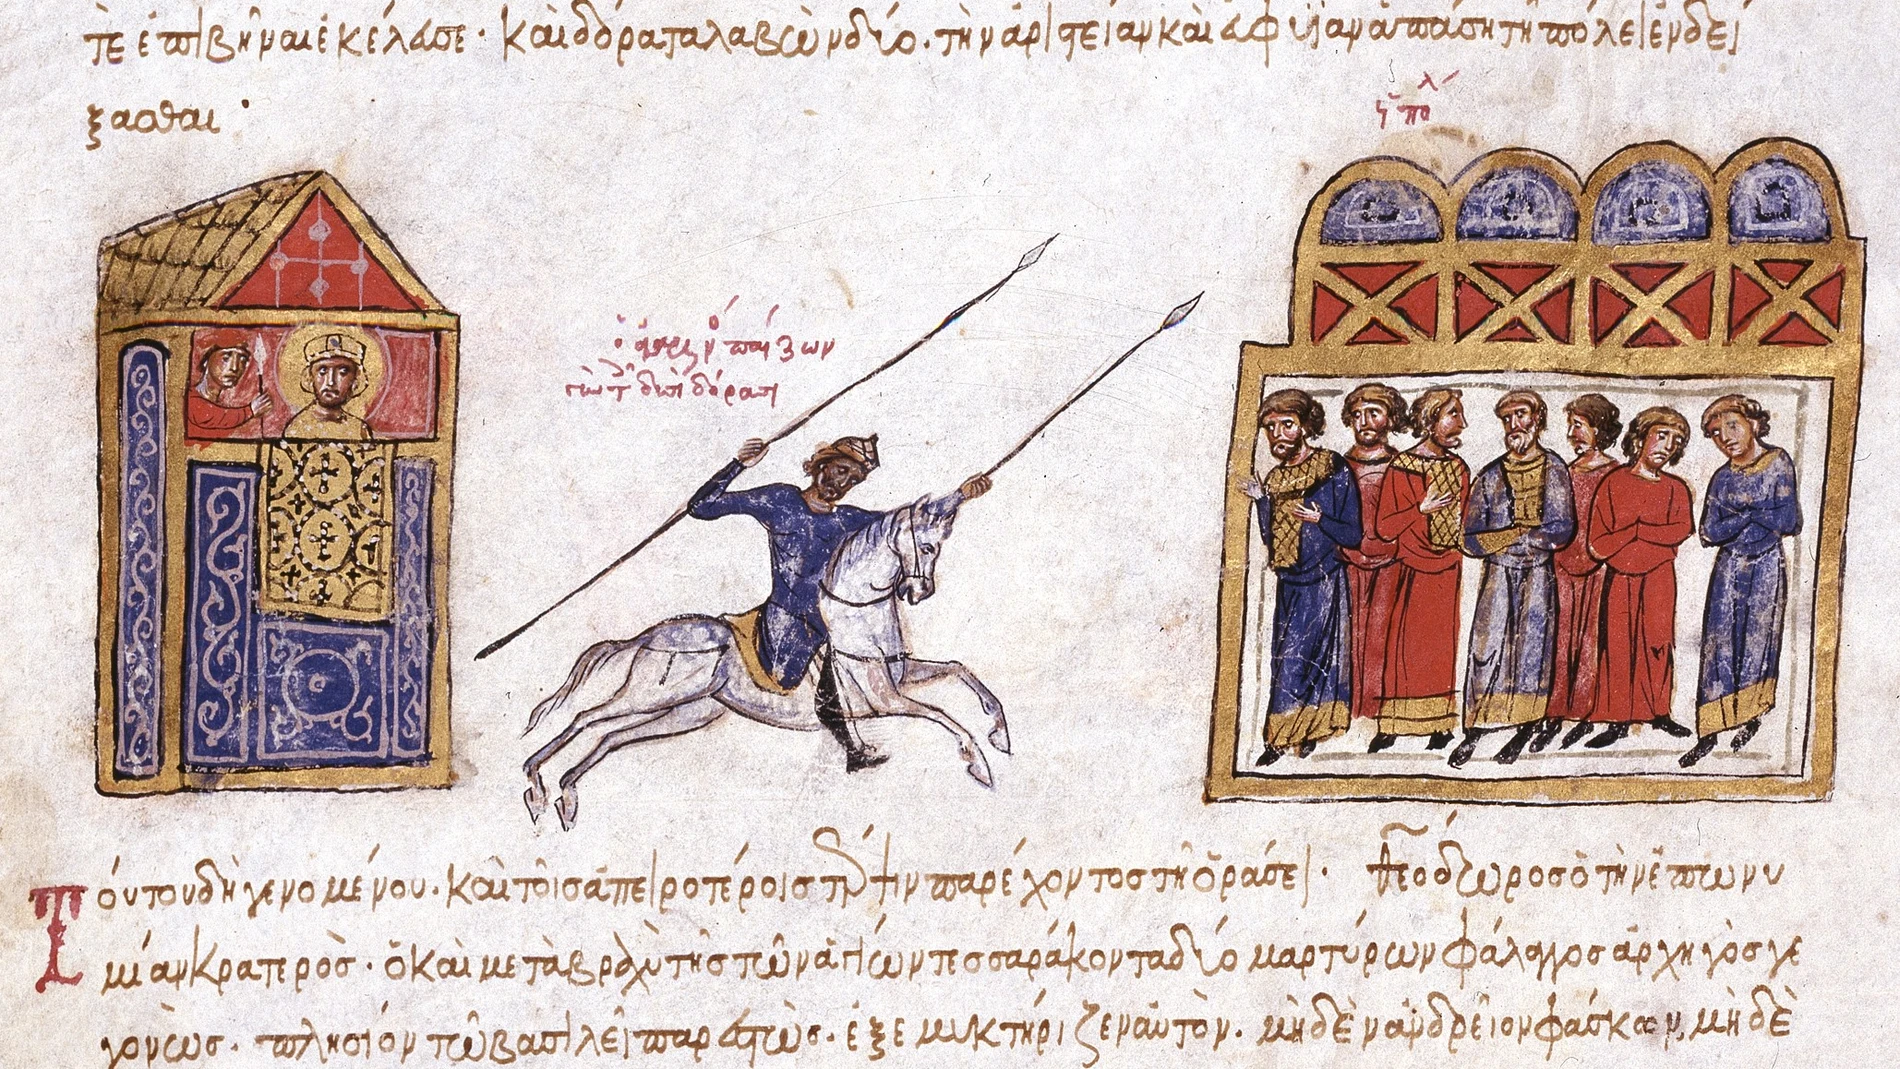 τε ἐπιβῆναι ἐκέλευσε· καὶ δόρατα λαβὼν δύο. τὴν ἀριστείαν καὶ εὐφυΐαν ἁπάσῃ τῇ πόλει ἐνδεί
ξασθαι·
ὁ παίζων
δυσὶ δόρασι
Τούτου δὴ γενομένου. καὶ τοῖς ἀπειροτέροις παρέχοντος τῇ ὁράσει· Θεόδωρος ὁ τὴν ἐπωνυ
μίαν Κρατερὸς. ὁ καὶ μετὰ βραχὺ τῆς τῶν ἁγίων τεσσαράκοντα δύο μαρτύρων φάλαγγος ἀρχηγὸς γε
γονὼς. πλησίον τῶ βασιλεῖ παρεστὼς. ἐξεμυκτήριζεν αὐτὸν. μηδὲν ἀνδρεῖον φάσκων, μηδὲ